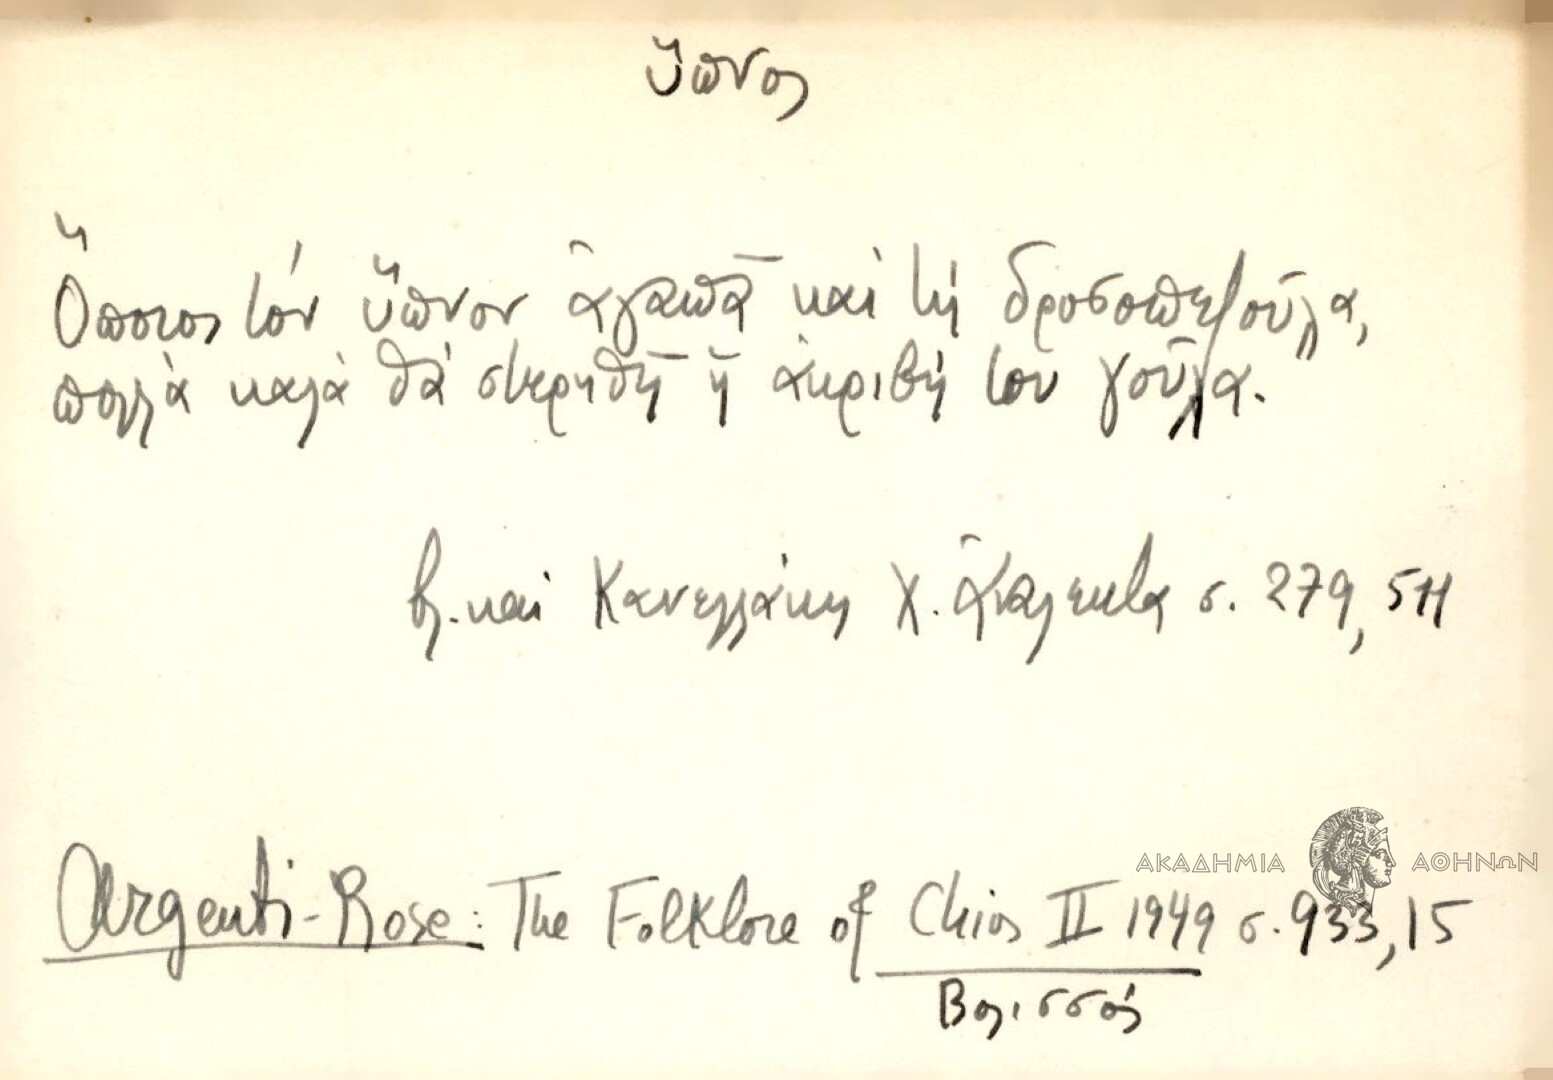 ὕπνος
Ὅποιος τόν ὕπνον ἀγαπᾶ καί τή δροσοπεζούλα,
πολλά καλά θά στερηθῆ ἡ ἀκριβή του γούλα.
βλ. καί Κανελλάκη Χ. Ἀνάλεκτα σ. 279, 511
Argenti-Rose: The Folklore of Chios II 1949 σ. 933, 15
Βολισσός
ΑΚΑΔΗΜΙΑ ΑΘΗΝΩΝ